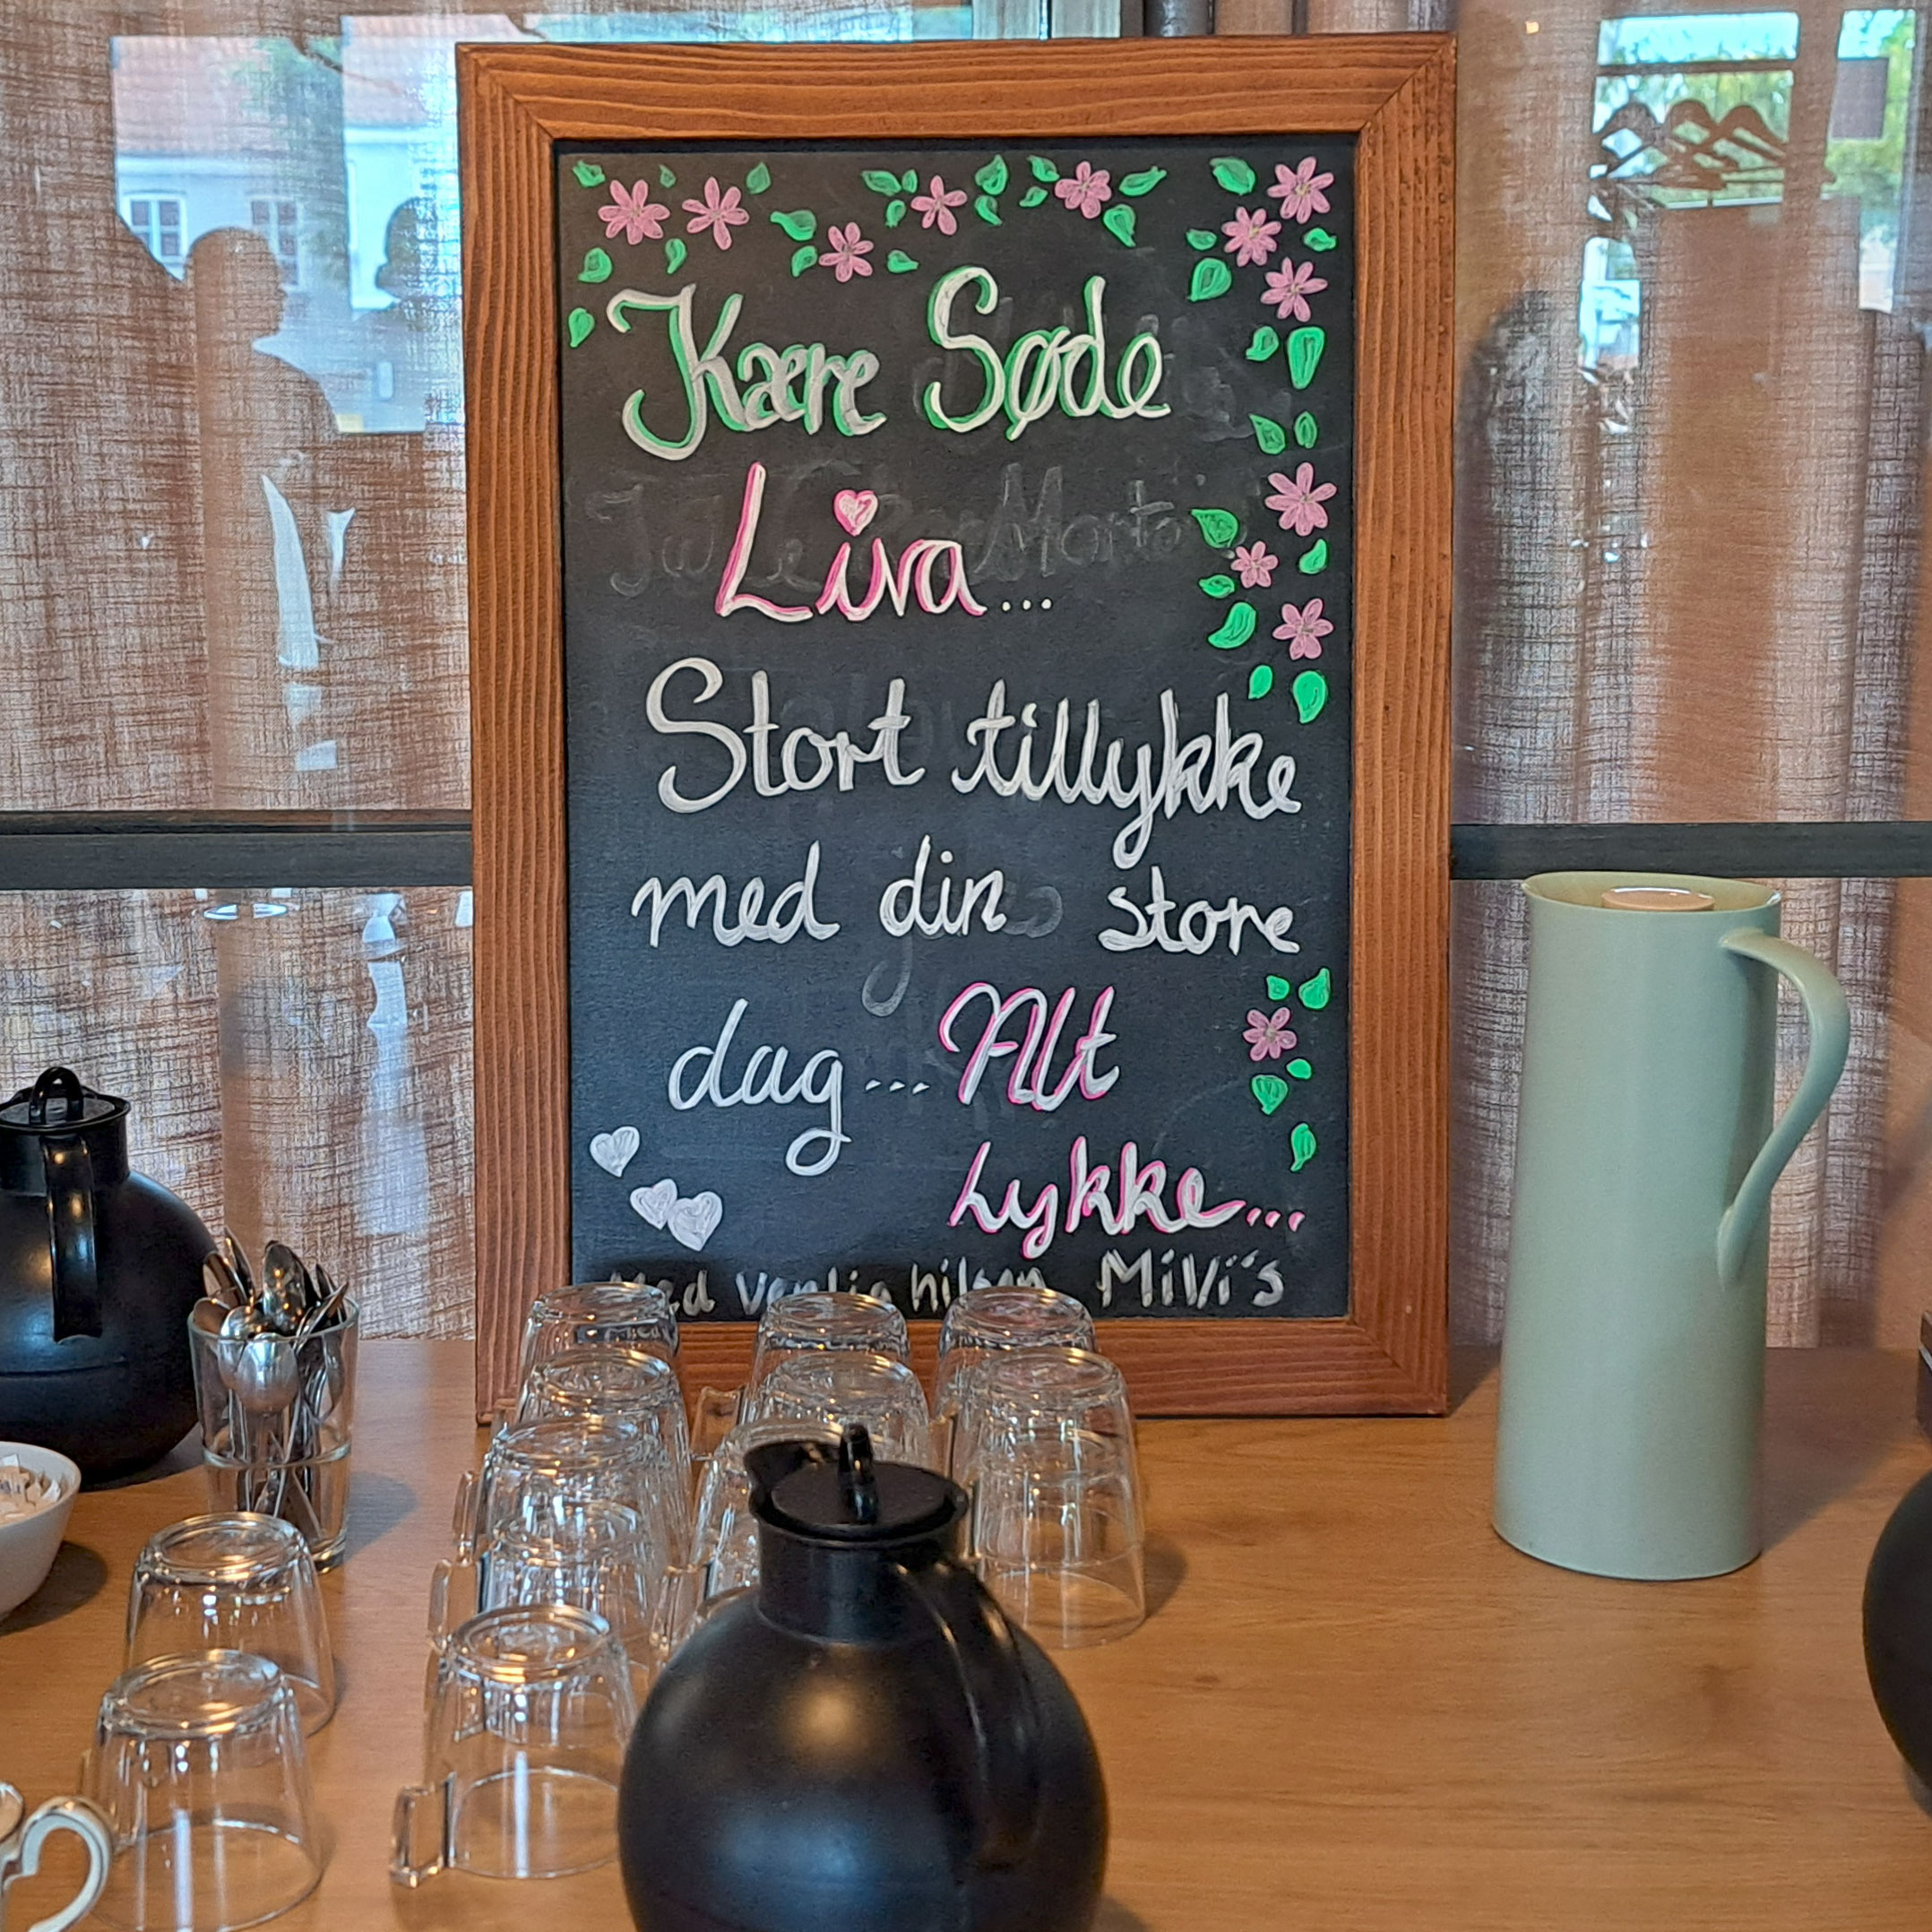 Kære Søde
Liva...
Stort tillykke
med din store
dag... Alt
Lykke...
Med Venlig hilsen MiVi's